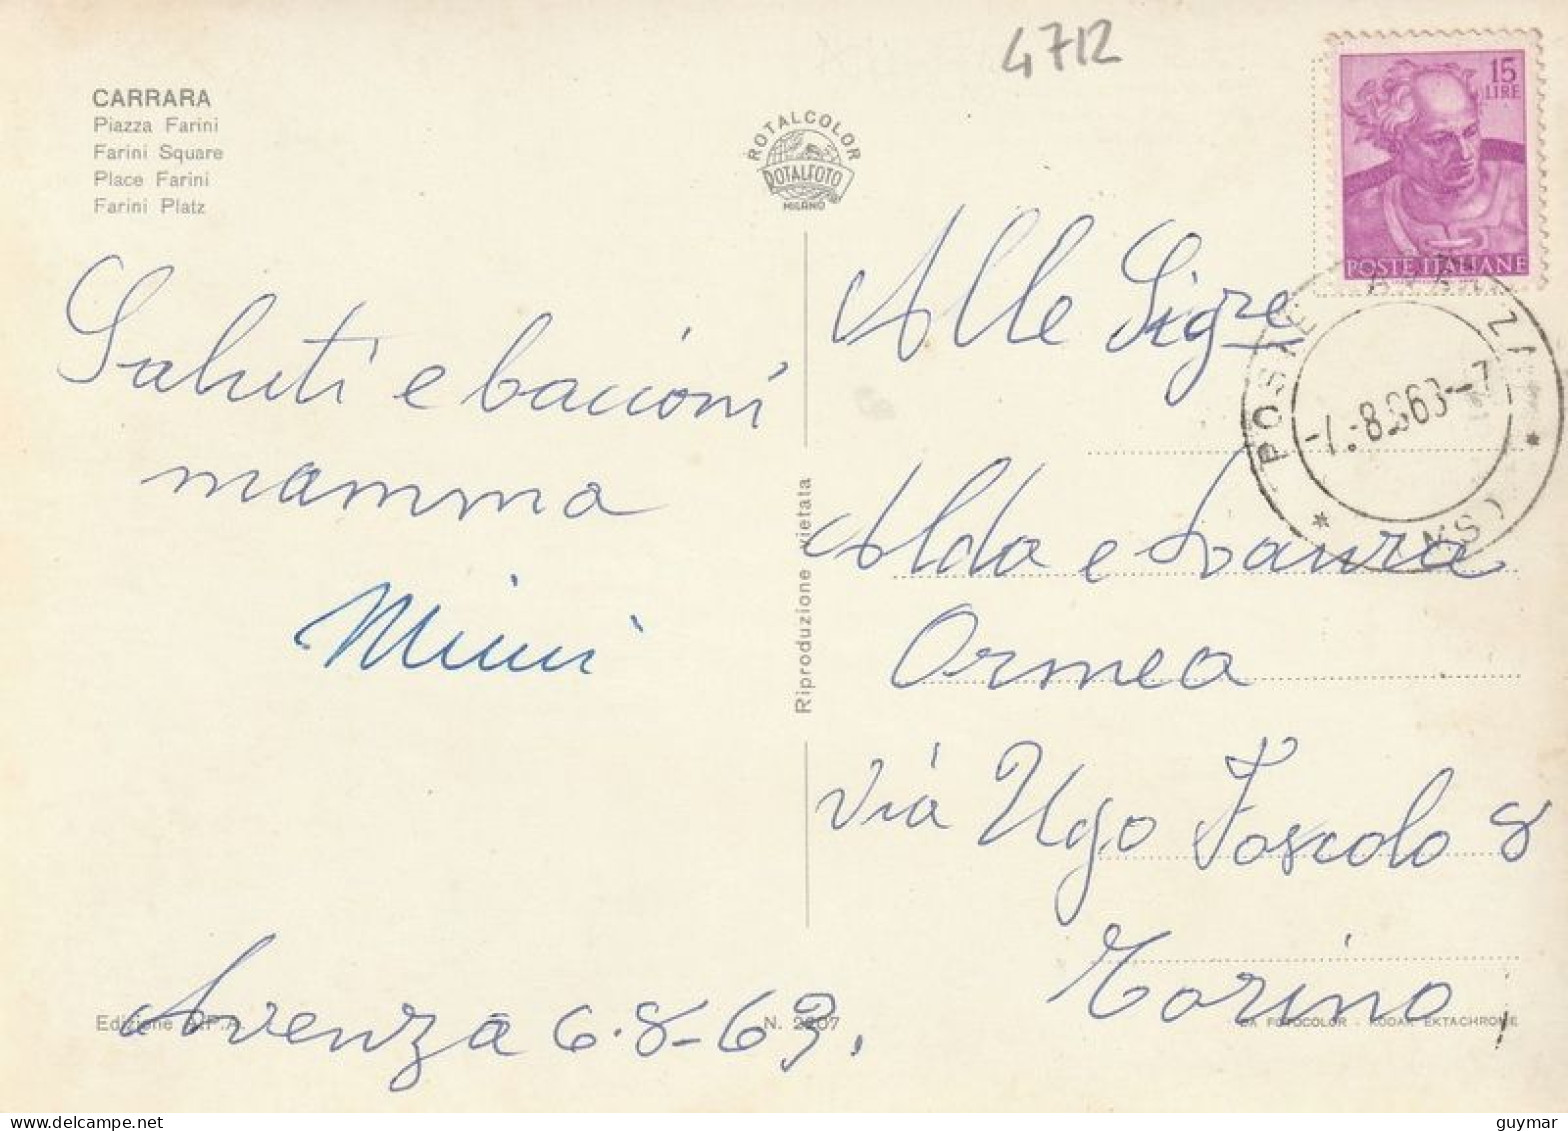 4712
CARRARA
Piazza Farini
Farini Square
Place Farini
Farini Platz
ROTALCOLOR
ROTALFOTO
MILANO
15
LIRE
POSTE ITALIANE
POSTE
(MS)
Saluti e bacioni
mamma
Mimi
Avenza 6.8-63.
Alle Sigre
Alda e Laura
Ormea
Via Ugo Foscolo 8
Torino
Riproduzione vietata
Edizione A.P.A.
N. 2207
DA FOTOCOLOR - KODAK EKTACHROME
guymar